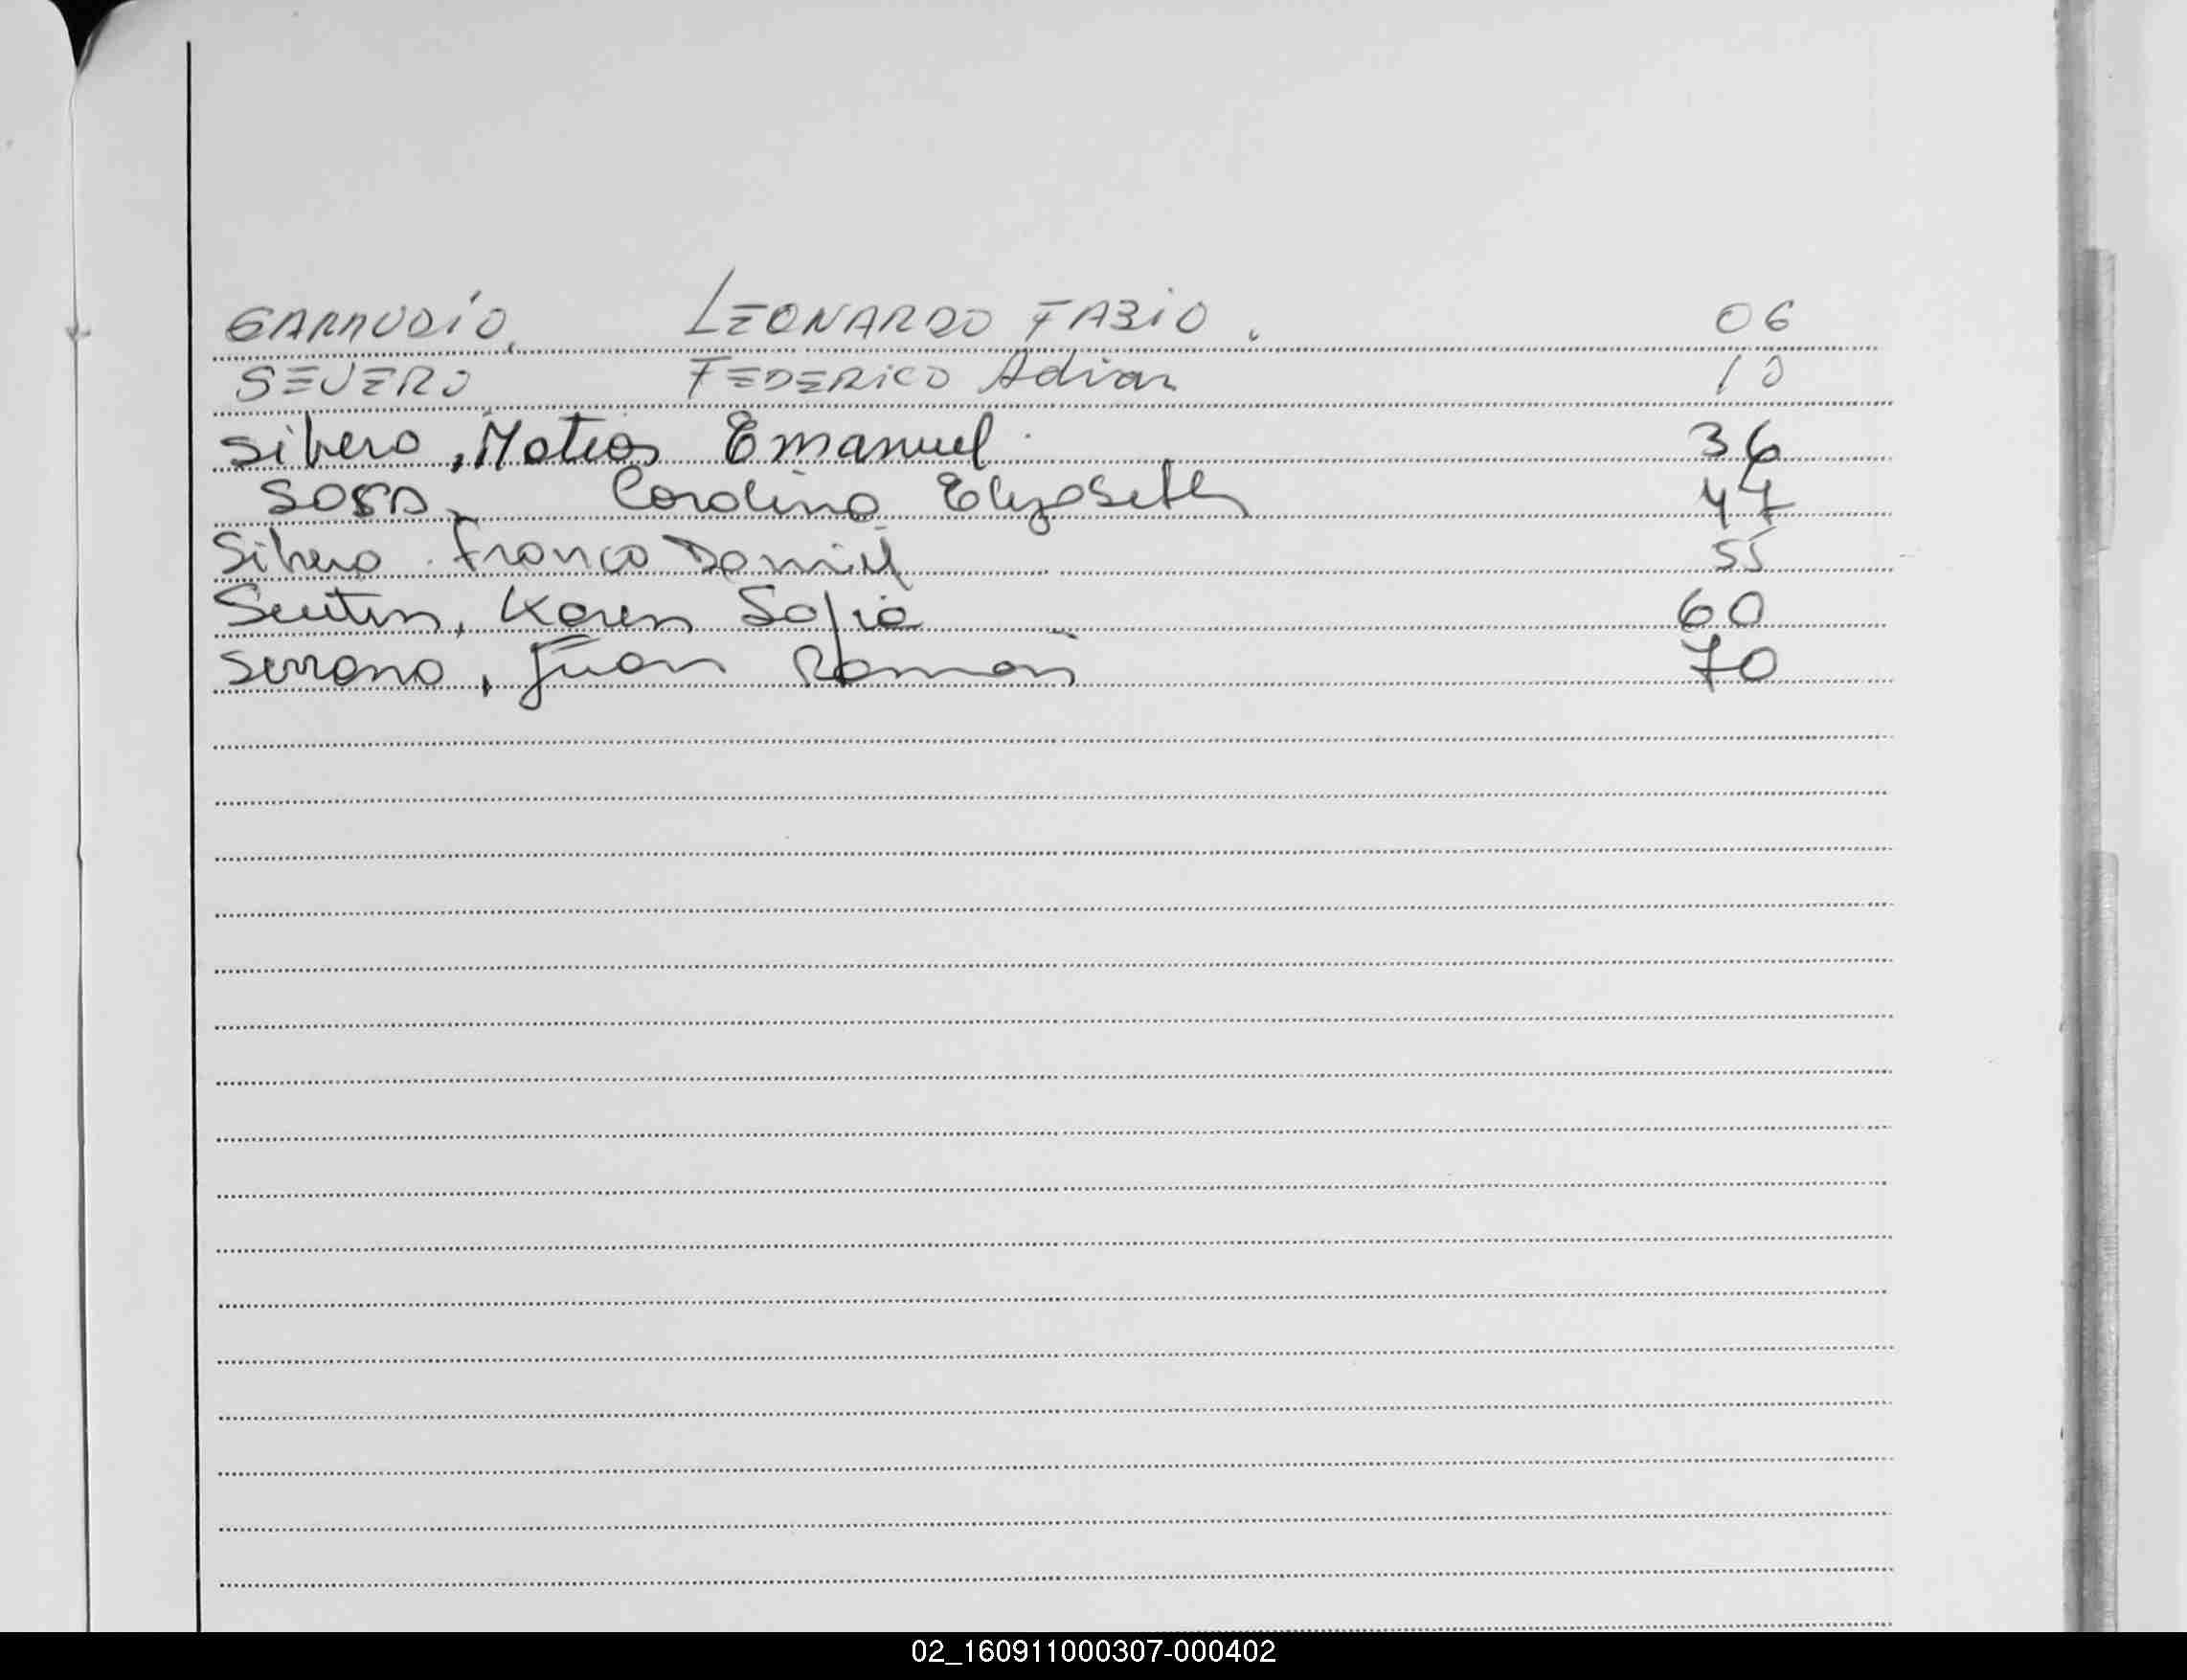 GAMUDÍO, LEONARDO FABIO. 06
SEVERO FEDERICO Adrian 10
Silvero, Matias Emanuel. 36
SOSA, Carolina Elizabeth 47
Silvero. Franco Daniel 55
Karen Sofia 60
Serrano, Juan Roman 70
02_160911000307-000402